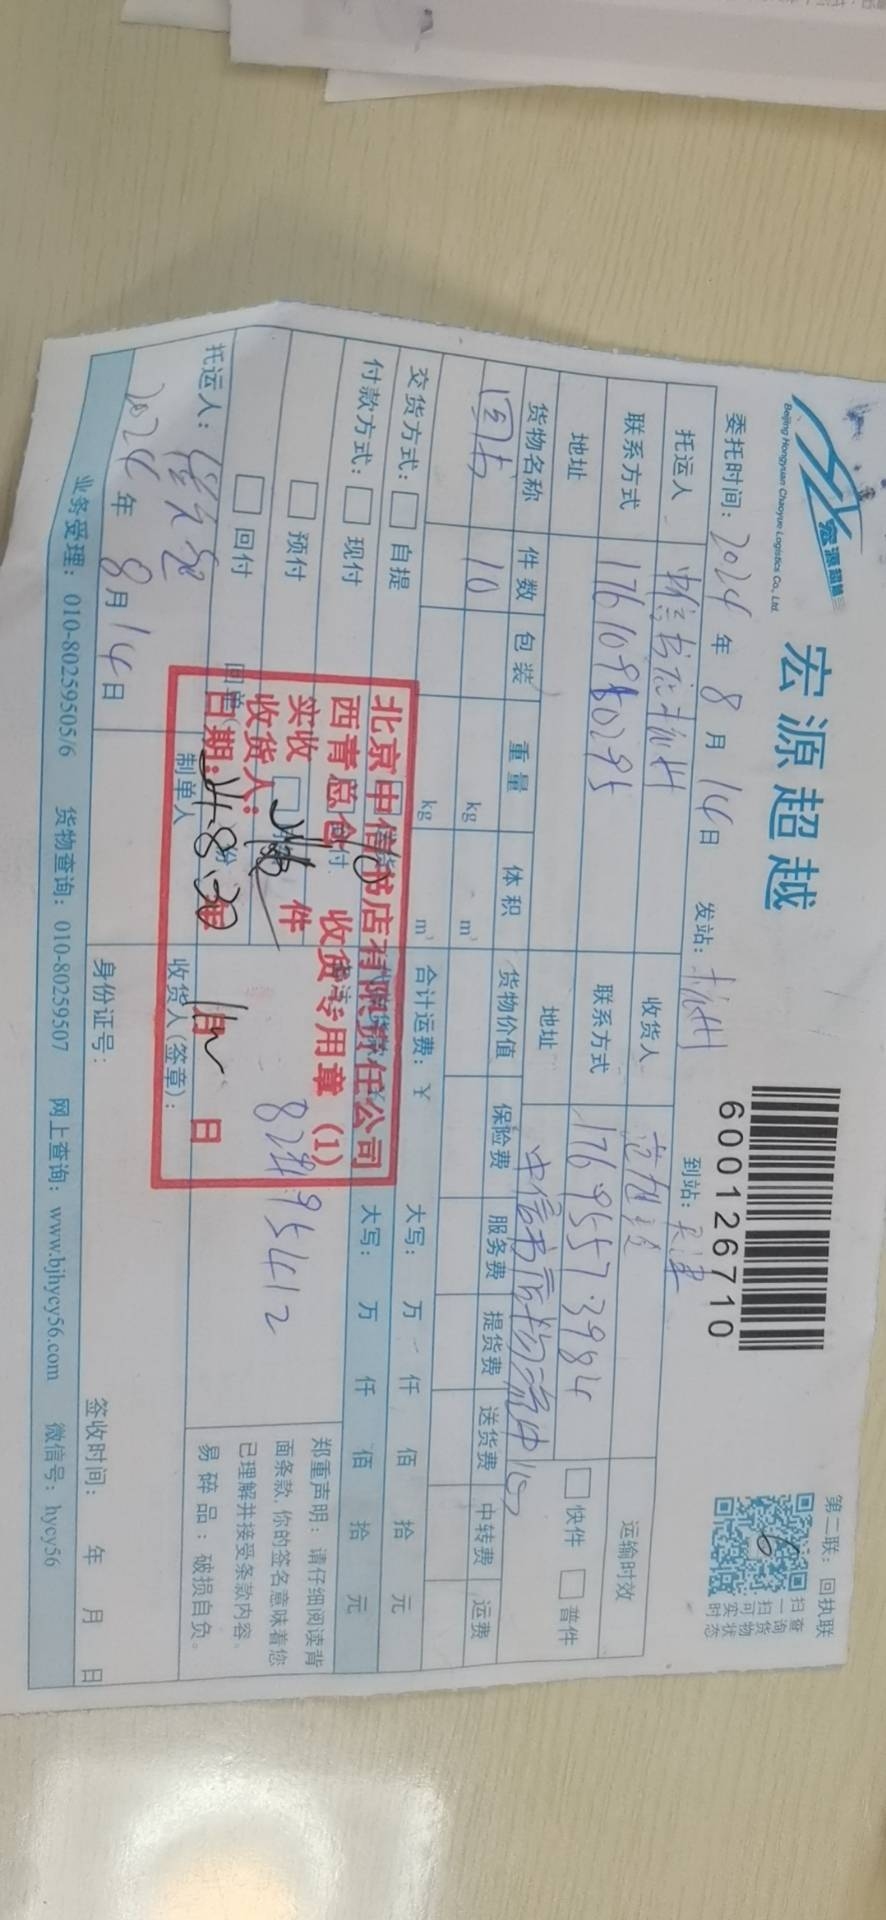 宏源超越
Beijing Hongyuan Chaoyue Logistics Co., Ltd.
宏源超越
600126710
第二联：回执联
扫一扫可实时
查询货物状态
委托时间：2024 年 8 月 14 日 发站：杭州 到站：天津
托运人 收货人 运输时效
联系方式 17610980295 联系方式 17695573984 快件 普件
地址 地址 中信书店物流中心
货物名称 件数 包装 重量 体积 货物价值 保险费 服务费 提货费 送货费 中转费 运费
图书 10 kg m³
kg m³
交货方式： 自提 合计运费：¥ 大写： 万 仟 佰 拾 元
付款方式： 现付 大写： 万 仟 佰 拾 元
预付
回付 回单
82495412
郑重声明：请仔细阅读背
面条款，你的签名意味着您
已理解并接受条款内容。
易碎品：破损自负。
北京中信书店有限责任公司
西青总仓 收货专用章（1）
实收 10 件
收货人：
日期：24.8.30 日
托运人： 制单人 收货人（签章）：
2024 年 8 月 14 日 身份证号： 签收时间： 年 月 日
业务受理：010-80259505/6 货物查询：010-80259507 网上查询：www.bjhycy56.com 微信号：hycy56